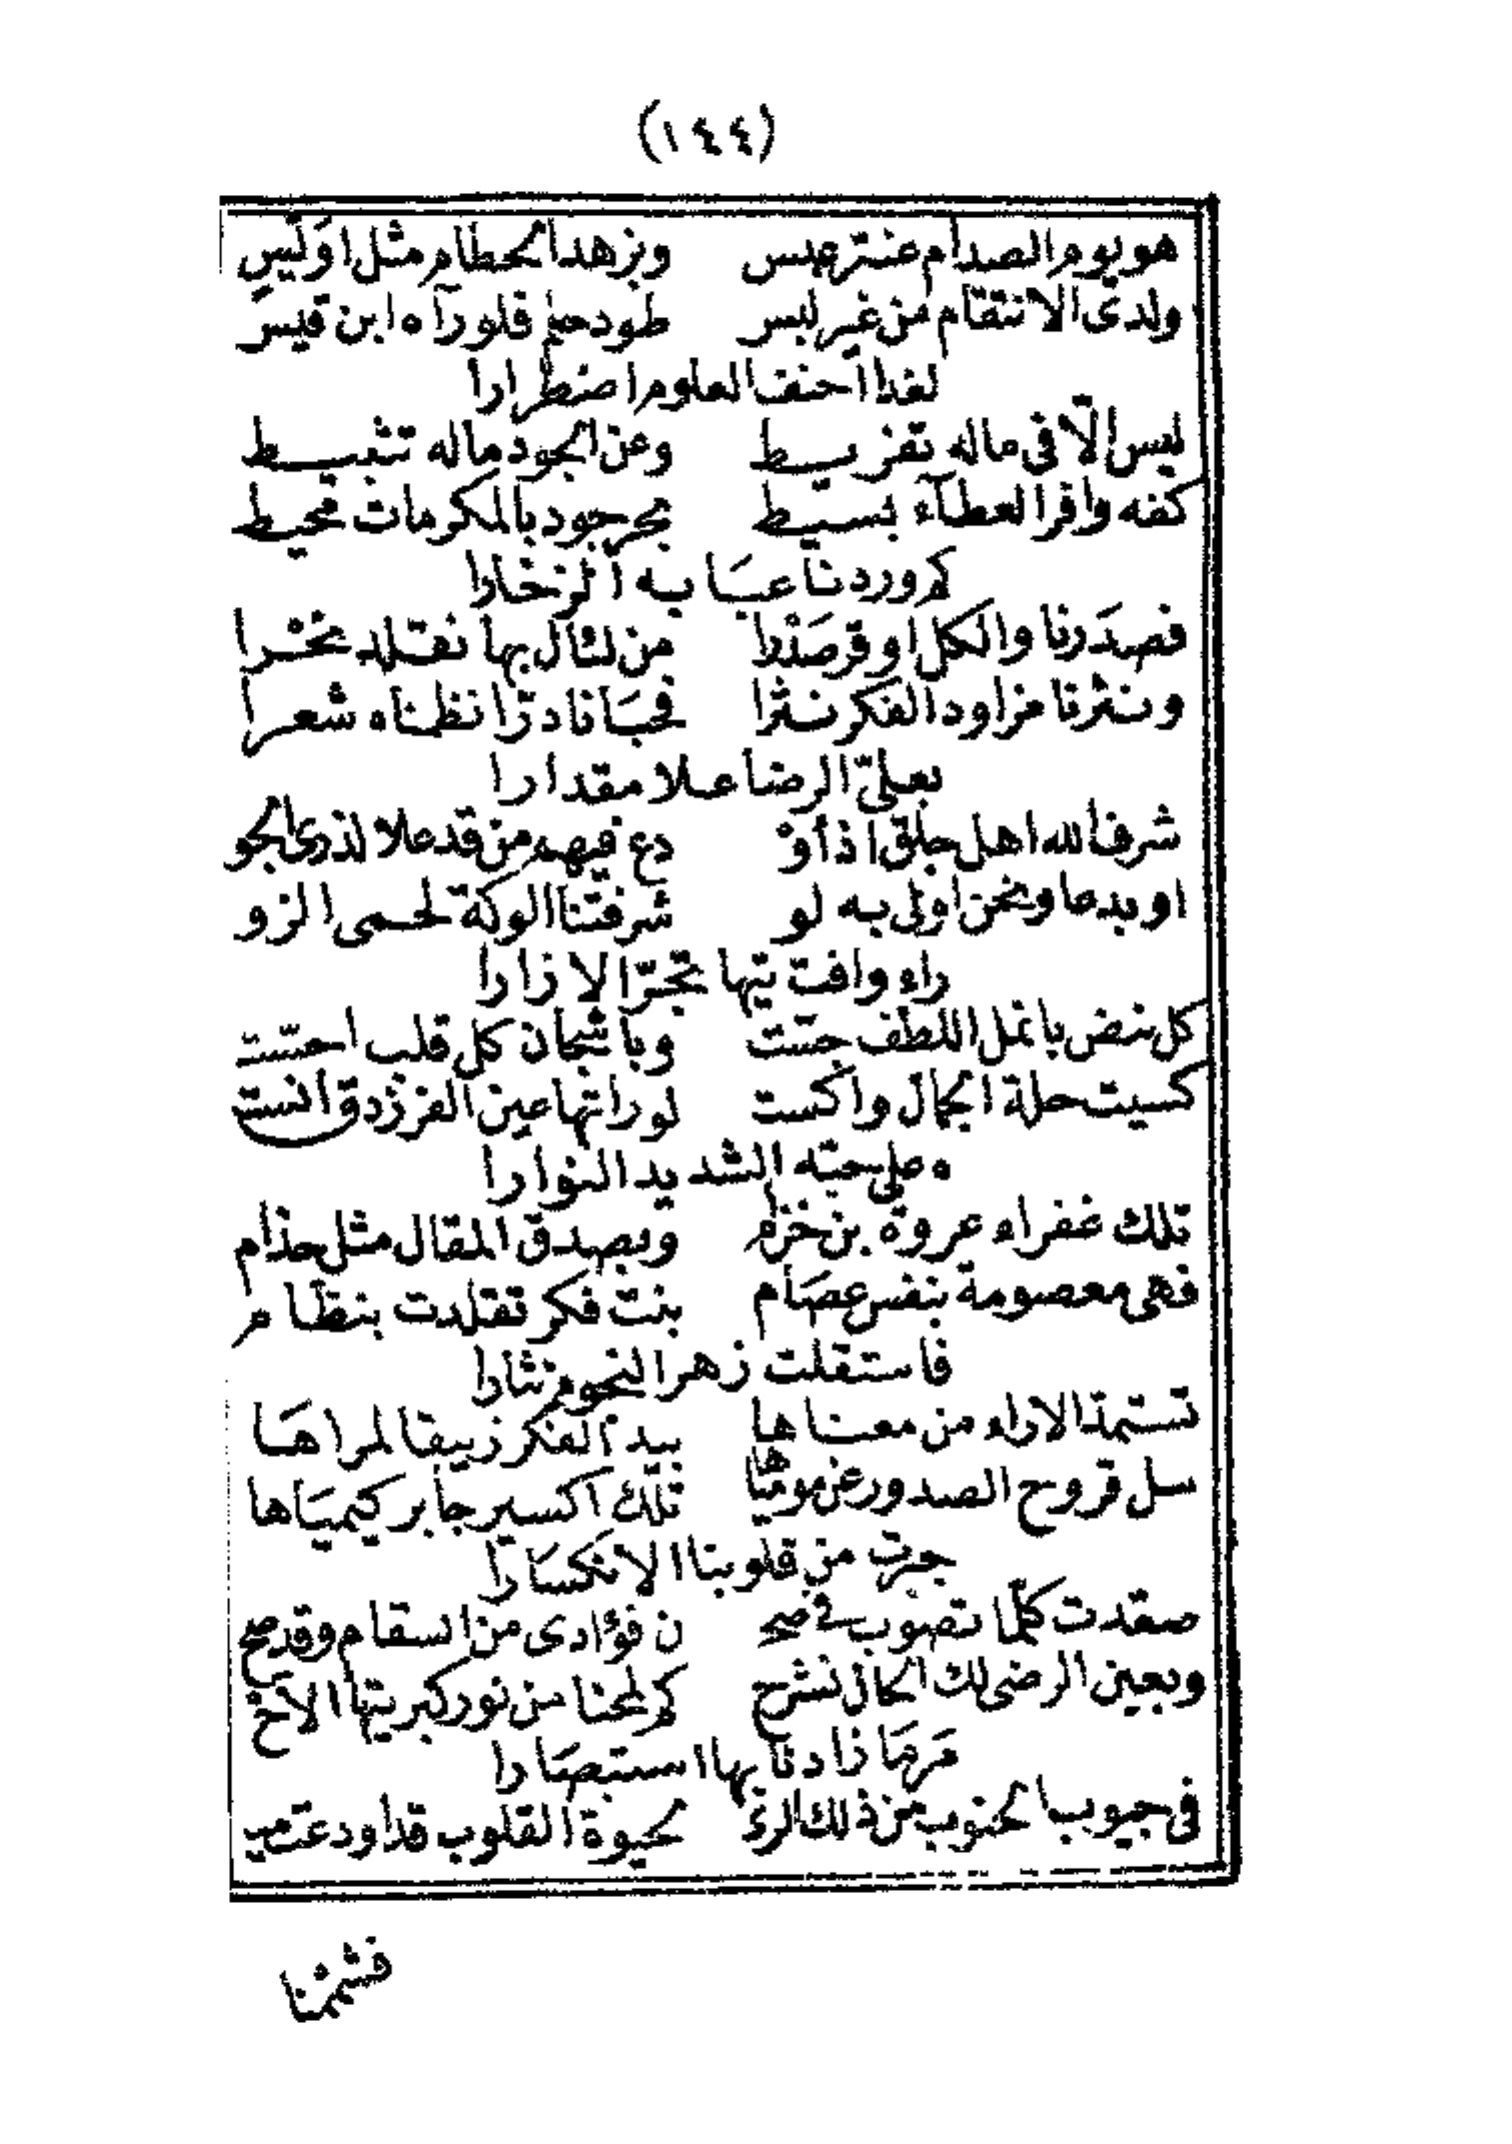 (١٤٤)
هو يوم الصدام عنتر عبس وبزهد الحطام مثل اوَيسٍ
ولدى الانتقام من غير لبس طود حلم فلو رآه ابن قيس
لغدا احنف العلوم اضطرارا
ليس الّا فى ماله تفريط وعن الجود ماله تثبيط
كفه وافر العطآء بسيط بحر جود بالمكرمات محيط
كم وردنا عبَابه الزخارا
فصدَرنا والكل اوقر صَدْرا من لئال بها نقلد نحْرا
ونثرنا مزاود الفكر نثرا فحبَانا درّا نظمناه شعرا
بعلىّ الرضا علا مقدارا
شرف الله اهل جلق اذ أوْ دع فيهم من قد علا لذرى الجو
او يدعا ونحن اولى به لو شرفتنا الوكة لحمى الزو
راء وافت تيها تجرّ الازارا
كل نبض بانمل اللطف جسّت وباشجان كل قلب احسّت
كسيت حلة الجمال واكست لو راتها عين الفرزدق انست
ه على حبّه الشديد النوارا
تلك عفراء عروة بن حزام وبصدق المقال مثل حذام
فهى معصومة بنفس عصَام بنت فكر تقلدت بنظام
فاستقلت زهر النجوم نثارا
تستمدّ الاراء من معناها بيد الفكر زيبقا لمراهَا
سل قروح الصدور عن موميَاها تلك اكسير جابر كيميَاها
جبرت من قلوبنا الانكسَارا
صعّدت كلّما تصوب فى صحـ ن فؤادى من اسقام وقد صح
وبعين الرضى لك الحال نشرح كم لمحنا من نور كبريتها الاحْ
مَرمَا زادنا بها استبصَارا
فى جيوب الجنوب من ذلك الرىّ لحيوة القلوب قد اودعت مى
فشممنا